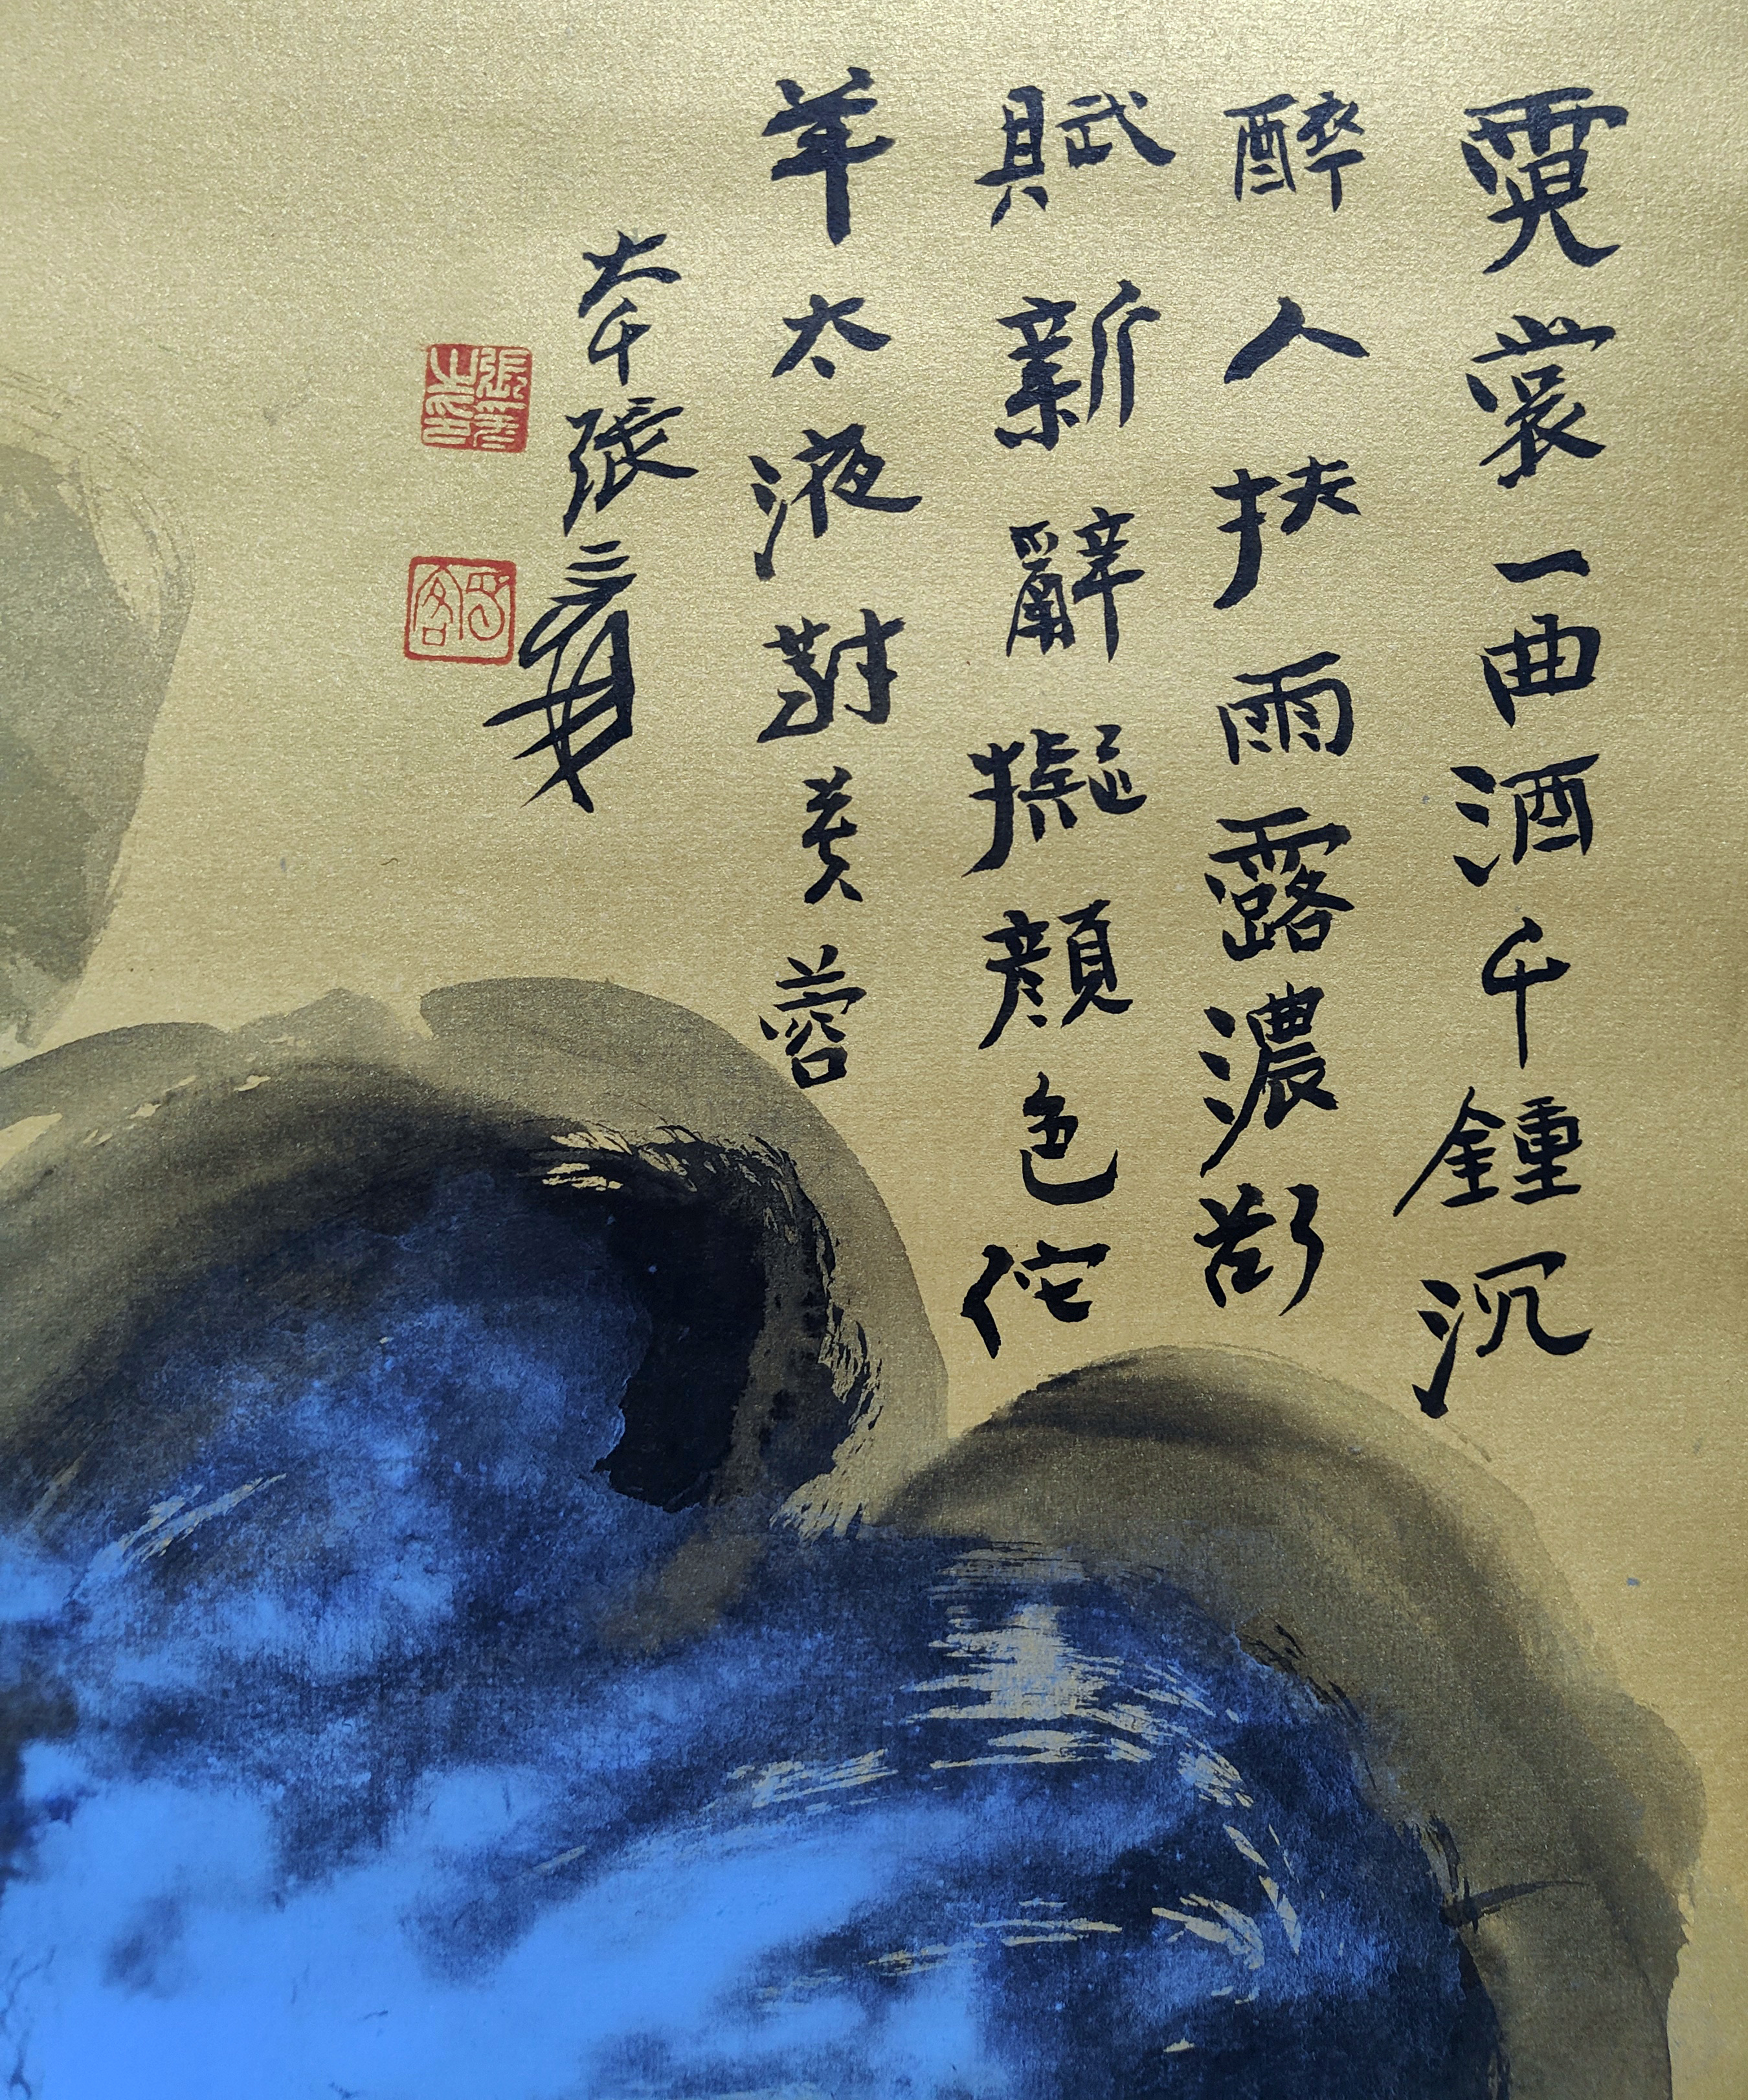 霓裳一曲酒千鍾沉
醉人扶雨露濃
賦新辭擬顏色佗
年太液對芙蓉
大千張爰
張爰之印
蜀客